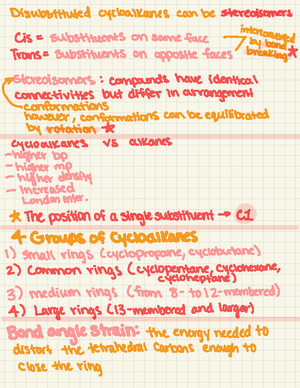 Disubstituted cycloalkanes can be stereoisomers
Cis = substituents on same face
Trans = substituents on opposite faces
interconverted
by bond
breaking *
Stereoisomers : compounds have identical
connectivities but differ in arrangement
conformations
however, conformations can be equilibrated
by rotation *
cycloalkanes vs alkanes
- higher bp
- higher mp
- higher density
- increased
London inter.
* The position of a single substituent → C1
4 Groups of Cycloalkanes
1) Small rings (cyclopropane, cyclobutane)
2) Common rings (cyclopentane, cyclohexane,
cycloheptane)
3) medium rings (from 8- to 12-membered)
4) Large rings (13-membered and larger)
Bond angle strain: the energy needed to
distort the tetrahedral carbons enough to
close the ring